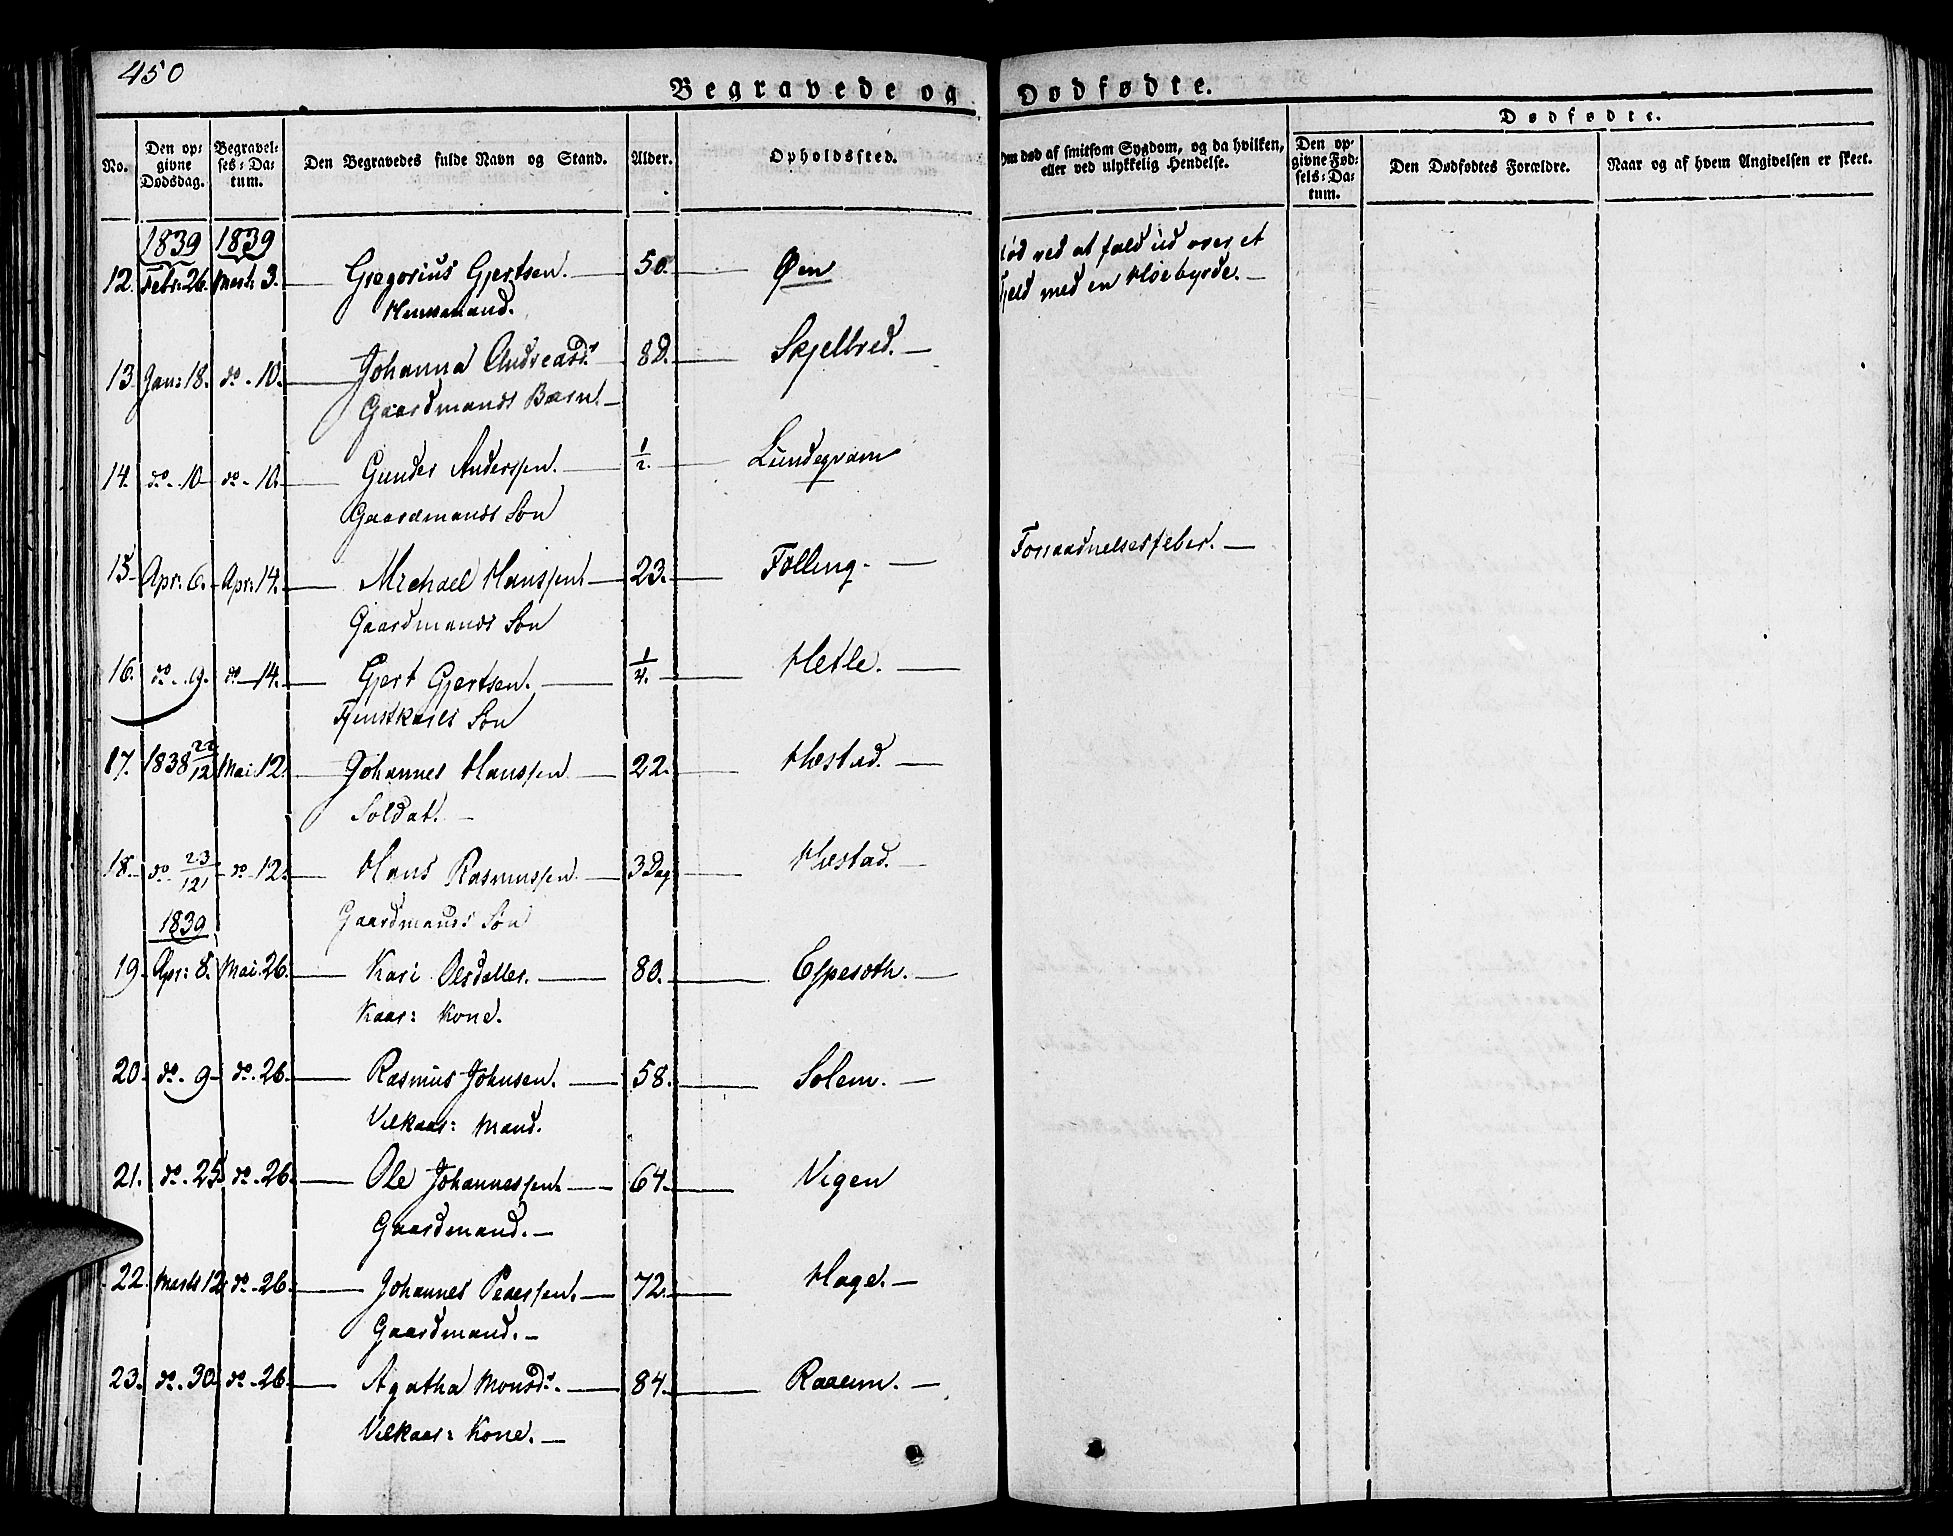 450
Begravede og Dødfødte.
No.
Den opgivne Dødsdag.
Begravelses-Datum.
Den Begravedes fulde Navn og Stand.
Alder.
Opholdssted.
Om død af smitsom Sygdom, og da hvilken, eller ved ulykkelig Hendelse.
Dødfødte.
Den opgivne Fødsels-Datum.
Den Dødfødtes Forældre.
Naar og af hvem Angivelsen er skeet.
1839 1839
12. Febr: 26. Marts 3. Gregorius Gjertsen. 50. Øen død ved at fald ud over et
Huusmand. Fjeld med en Høebyrde.
13. Jan: 18. do - 10. Johanna Andreasd. 8D. Skjelbred.
Gaardmands Barn.
14. do - 10 do - 10. Gunder Anderssen. 1/2. Lundeqvam
Gaardmands Søn
15 Apr: 6. Apr: 14. Michael Hanssen 23. Følling. Forraadnelsesfeber.
Gaardmands Søn
16. do - 9. do - 14. Gjert Gjertsen. 1/4. Hetle.
Tjenstkarls Søn
17. 1838 22/12 Mai 12. Johannes Hanssen 22. Hæstad.
Soldat.
18. do 23/12 do - 12. Hans Rasmussen 3 Dag Hæstad.
Gaardmands Søn
1839
19. Apr: 8. Mai 26. Kari Olsdatter. 80. Espesøth.
Kaar: Kone.
20. do - 9 do - 26. Rasmus Johnsen. 58. Solem.
Vilkaar: Mand.
21. do - 25 do - 26. Ole Johannessen 64. Vigen
Gaardmand.
22. Marts 12. do - 26. Johannes Pederssen. 72. Hage.
Gaardmand.
23. do - 30 do - 26. Agatha Monsd. 84. Raaum.
Vilkaar: Kone.